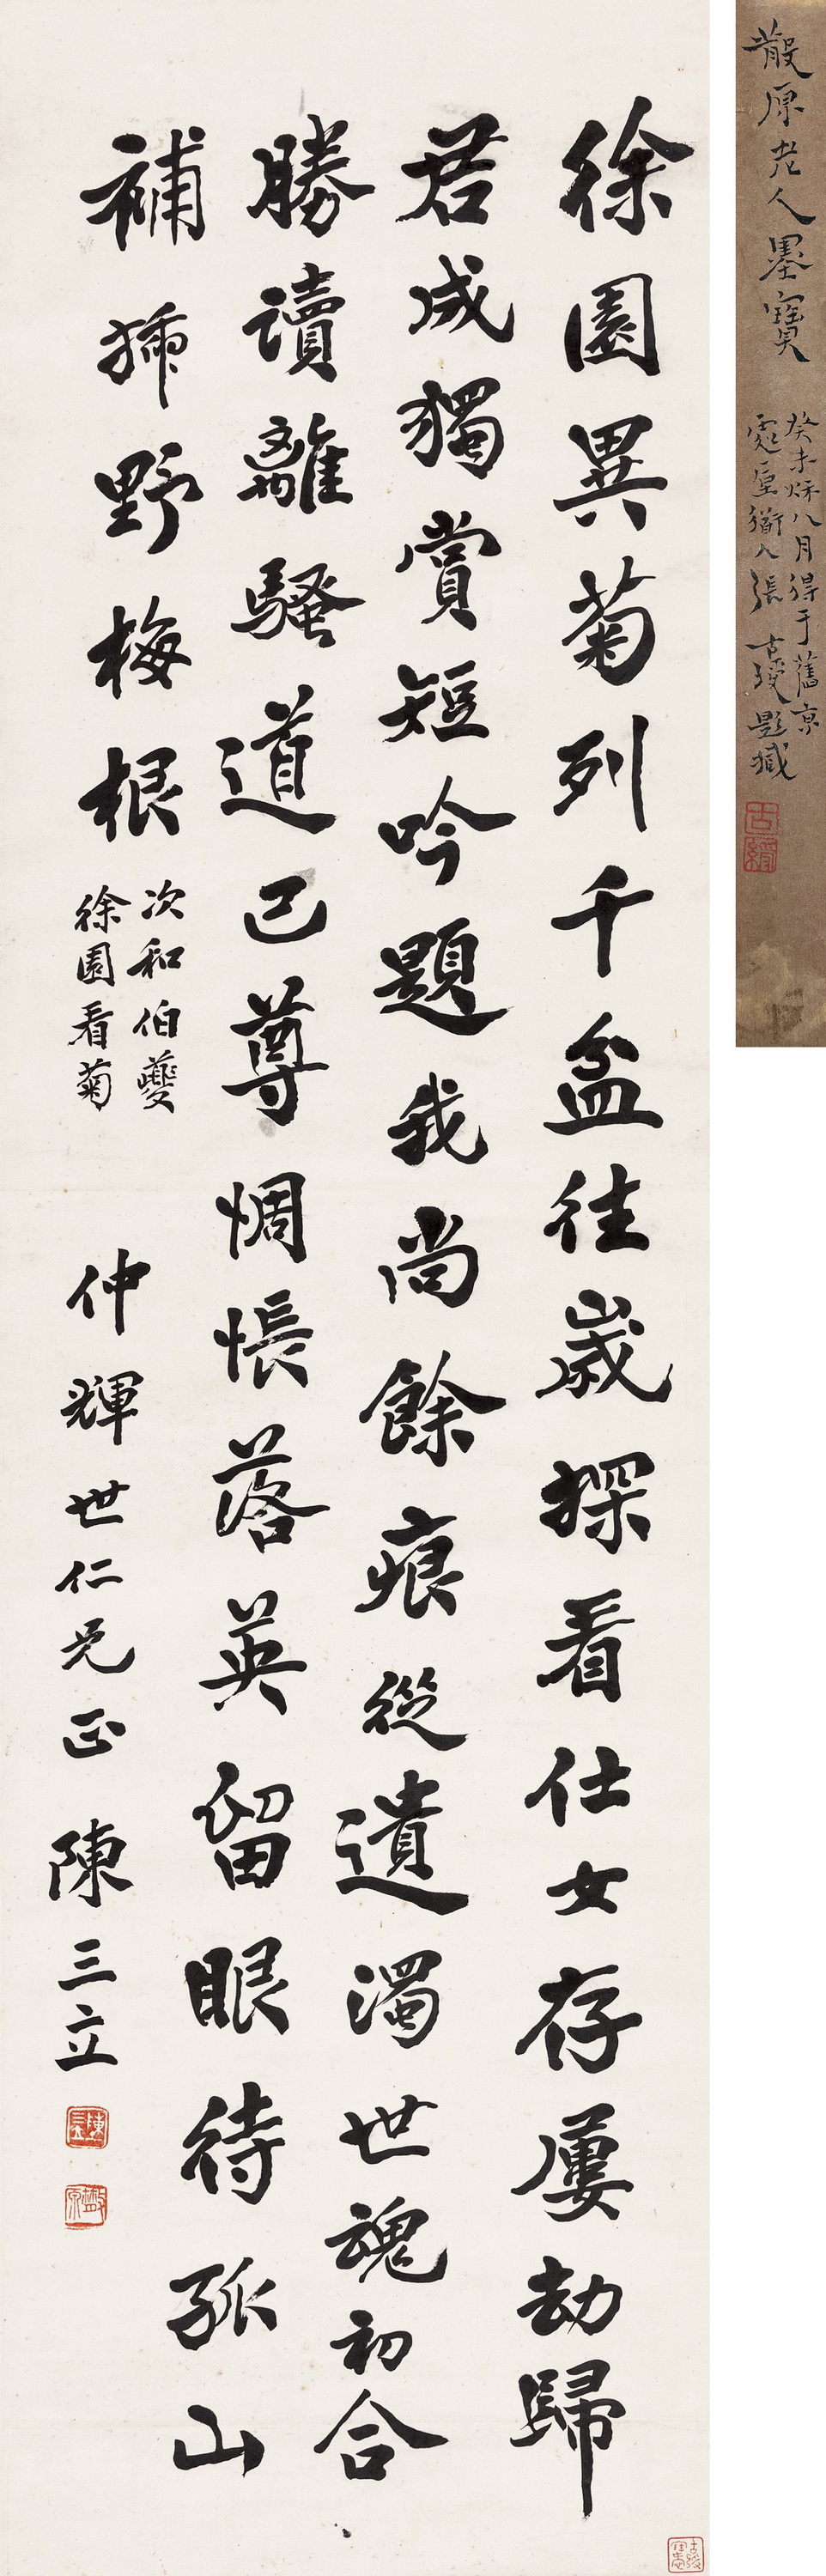 散原老人墨寶
癸未秌八月得于舊京
衜人張 題
徐園異菊列千盆往歲探看仕女存屢劫歸
君成獨賞短吟題我尚餘痕從遺濁世魂初合
勝讀離騷道已尊惆悵落英留眼待孤山
補插野梅根
次和伯夔
徐園看菊
仲輝世仁兄正 陳三立